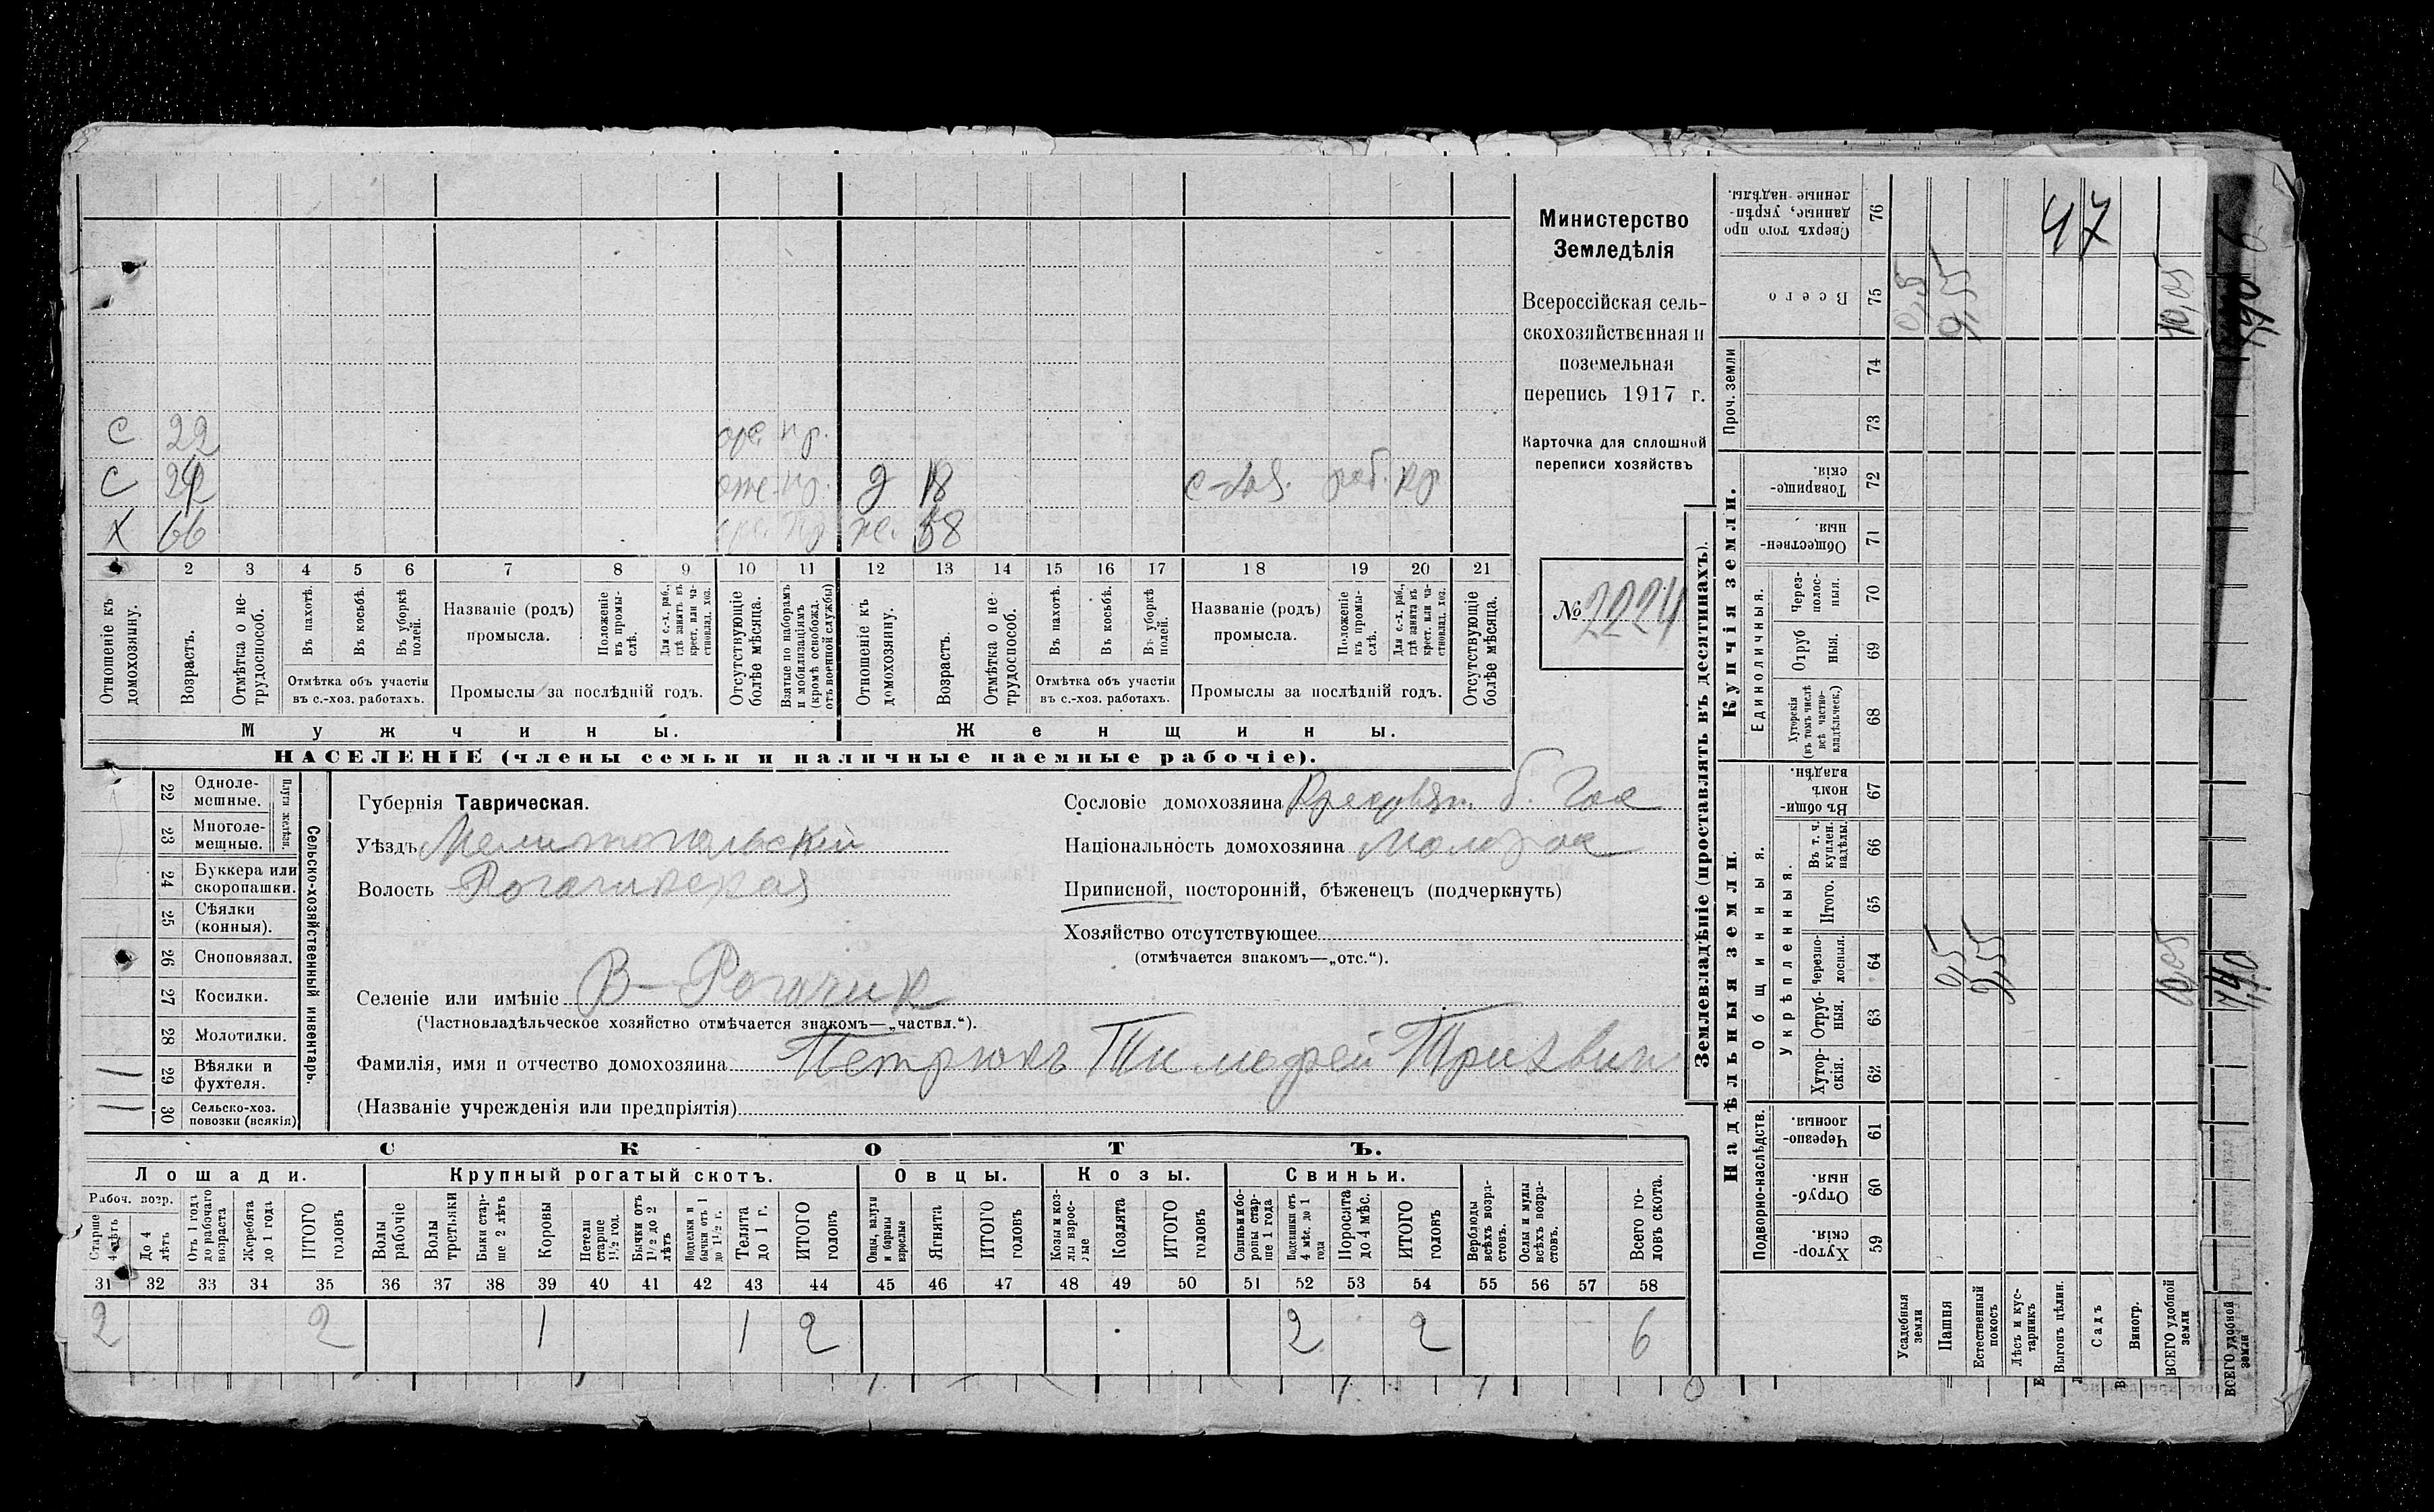 С 22
С 22
Х 66
д 18
с-хоз. раб. кр
же. 58
1 2 3 4 5 6 7 8 9 10 11 12 13 14 15 16 17 18 19 20 21
Отношеніе къ домохозяину.
Возрастъ.
Отмѣтка о не-трудоспособ.
Въ пахотѣ.
Въ косьбѣ.
Въ уборкѣ полей.
Отмѣтка объ участіи
въ с.-хоз. работахъ.
Названіе (родъ)
промысла.
Положеніе въ промы-слѣ.
Для с.-х. раб., гдѣ занятъ въ крест. или ча-стновлад. хоз.
Промыслы за послѣдній годъ.
Отсутствующіе болѣе мѣсяца.
Взятые по наборамъ и мобилизаціямъ (кромѣ освобожд. отъ военной службы)
Отношеніе къ домохозяину.
Возрастъ.
Отмѣтка о не трудоспособ.
Въ пахотѣ.
Въ косьбѣ.
Въ уборкѣ полей.
Отмѣтка объ участіи
въ с.-хоз. работахъ.
Названіе (родъ)
промысла.
Положеніе въ промы-слѣ.
Для с.-х. раб., гдѣ занята въ крест. или ча-стновлад. хоз.
Промыслы за послѣдній годъ.
Отсутствующіе болѣе мѣсяца.
Мужчины.
Женщины.
НАСЕЛЕНІЕ (члены семьи и наличные наемные рабочіе).
Министерство
Земледѣлія
Всероссійская сель-
скохозяйственная и
поземельная
перепись 1917 г.
Карточка для сплошной
переписи хозяйствъ
№ 2224
22 Одноле-мешные.
23 Многоле-мешные.
Плуги желѣзн.
24 Буккера или скоропашки.
25 Сѣялки (конныя).
26 Сноповязал.
27 Косилки.
28 Молотилки.
29 Вѣялки и фухтеля. 1
30 Сельско-хоз. повозки (всякія) 1
Сельско-хозяйственный инвентарь.
Губернія Таврическая.
Уѣздъ Мелитопольскій
Волость Рогачикская
Селеніе или имѣніе В-Рогачик
(Частновладѣльческое хозяйство отмѣчается знакомъ—„частвл.“).
Фамилія, имя и отчество домохозяина Петрюкъ Тимофей
(Названіе учрежденія или предпріятія)
Сословіе домохозяина
Національность домохозяина Малорос
Приписной, посторонній, бѣженецъ (подчеркнуть)
Хозяйство отсутствующее
(отмѣчается знакомъ—„отс.“).
СКОТЪ.
Лошади.
Крупный рогатый скотъ.
Овцы.
Козы.
Свиньи.
Рабоч. возр.
Старше 4 лѣтъ
До 4 лѣтъ
Отъ 1 года до рабочаго возраста
Жеребята до 1 года
ИТОГО головъ
Волы рабочіе
Волы третьяки
Быки стар-ше 2 лѣтъ
Коровы
Нетели старше 1½ год.
Бычки отъ 1½ до 2 лѣтъ
Подтелки и бычки отъ 1 до 1½ г.
Телята до 1 г.
ИТОГО головъ
Овцы, валухи и бараны взрослые
Ягнята
ИТОГО головъ
Козы и коз-лы взрос-лые
Козлята
ИТОГО головъ
Свиньи и бо-ровы стар-ше 1 года
Подсвинки отъ 4 мѣс. до 1 года
Поросята до 4 мѣс.
ИТОГО головъ
Верблюды всѣхъ возра-стовъ.
Ослы и мулы всѣхъ возра-стовъ.
Всего го-ловъ скота.
31 32 33 34 35 36 37 38 39 40 41 42 43 44 45 46 47 48 49 50 51 52 53 54 55 56 57 58
2 2 1 1 2 2 2 6
Землевладѣніе (проставлять въ десятинахъ).
Надѣльныя земли.
Купчія земли.
Проч. земли
Подворно-наслѣдств.
Общинныя.
Укрѣпленныя.
Единоличныя.
Хутор-скія. 59
Отруб-ныя. 60
Черезпо-лосныя. 61
Хутор-скія. 62
Отруб-ныя. 63
Черезпо-лосныя. 64
Итого. 65
Въ т. ч. куплен. надѣлы. 66
Въ общи-номъ владѣн. 67
Хуторскія (въ томъ числѣ всѣ частно-владѣльческ.) 68
Отруб ныя. 69
Через-полос-ныя. 70
Обществен-ныя. 71
Товарище-скія. 72
73
74
Всего 75
Сверхъ того про даные, укрѣп-ленные надѣлы. 76
Усадебныя земли
Пашня
Естественный покосъ
Лѣсъ и кус-тарникъ
Выгонъ цѣлин.
Садъ
Виногр.
ВСЕГО удобной земли
0,5
9,55
10,05
0,5
9,55
10,05
47
ВСЕГО удобной земли